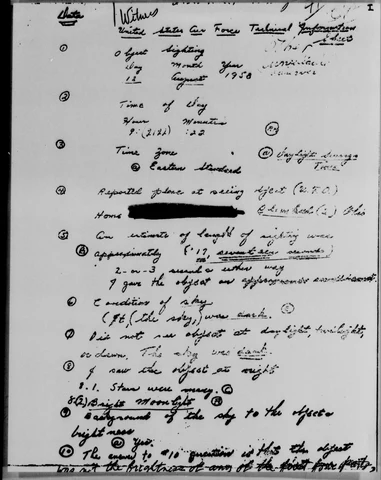 Data
Witness
I
United States Air Force Technical Information
Sheet
① Object Sighting
Day Month Year
12 August 1958
② Time of Day
Hour Minutes
9: :22
③ Time Zone
Eastern Standard
Daylight Savings
Time
④ Reported place at seeing object (U.F.O.)
Home Ohio
⑤ An estimate of length of sighting was
approximately (:17, seventeen seconds)
2-or-3 seconds either way
I gave the object an approximate
⑥ Condition of sky
(It (the sky,) was dark. C
⑦ Did not see object at daylight, twilight,
or dawn. The sky was dark.
⑧ I saw the object at night
8.1. Stars were many. C
8(2) Bright Moonlight A
⑨ Background of the sky to the object
brightness
Yes.
⑩ The answer to #10 question is that the object
was not the brightness of any of the first four parts,